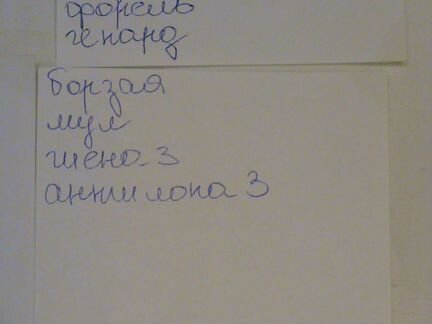 форель
гепард
борзая
мул
шено-3
антилопа 3